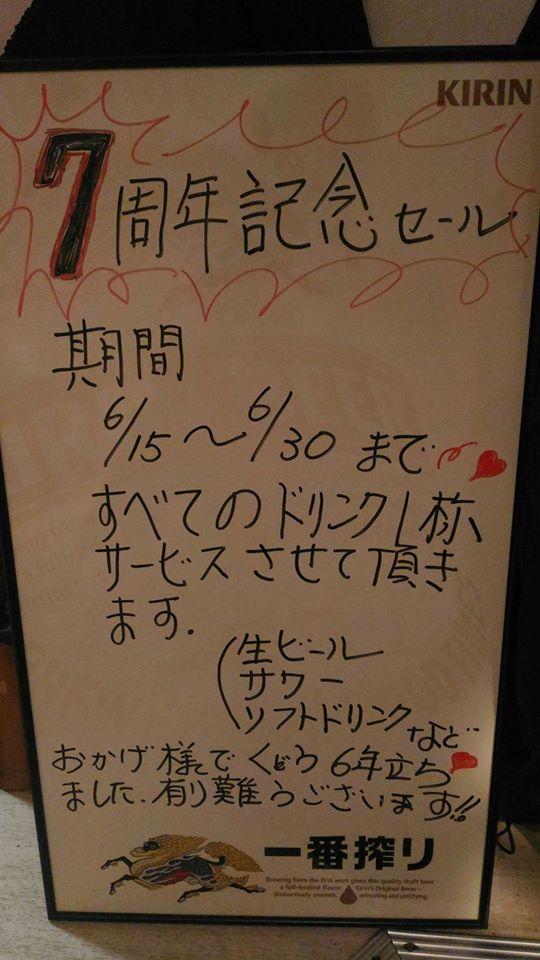 KIRIN
7周年記念セール
期間
6/15～6/30 まで
すべてのドリンク1杯
サービスさせて頂き
ます.
(生ビール
サワー
ソフトドリンク
など
おかげ様で くどう 6年立ち
ました.有り難うございます!!
一番搾り
Brewing from the first wort gives this quality draft beer
a full-bodied flavor. Kirin's Original Brew—
distinctively smooth, refreshing and satisfying.